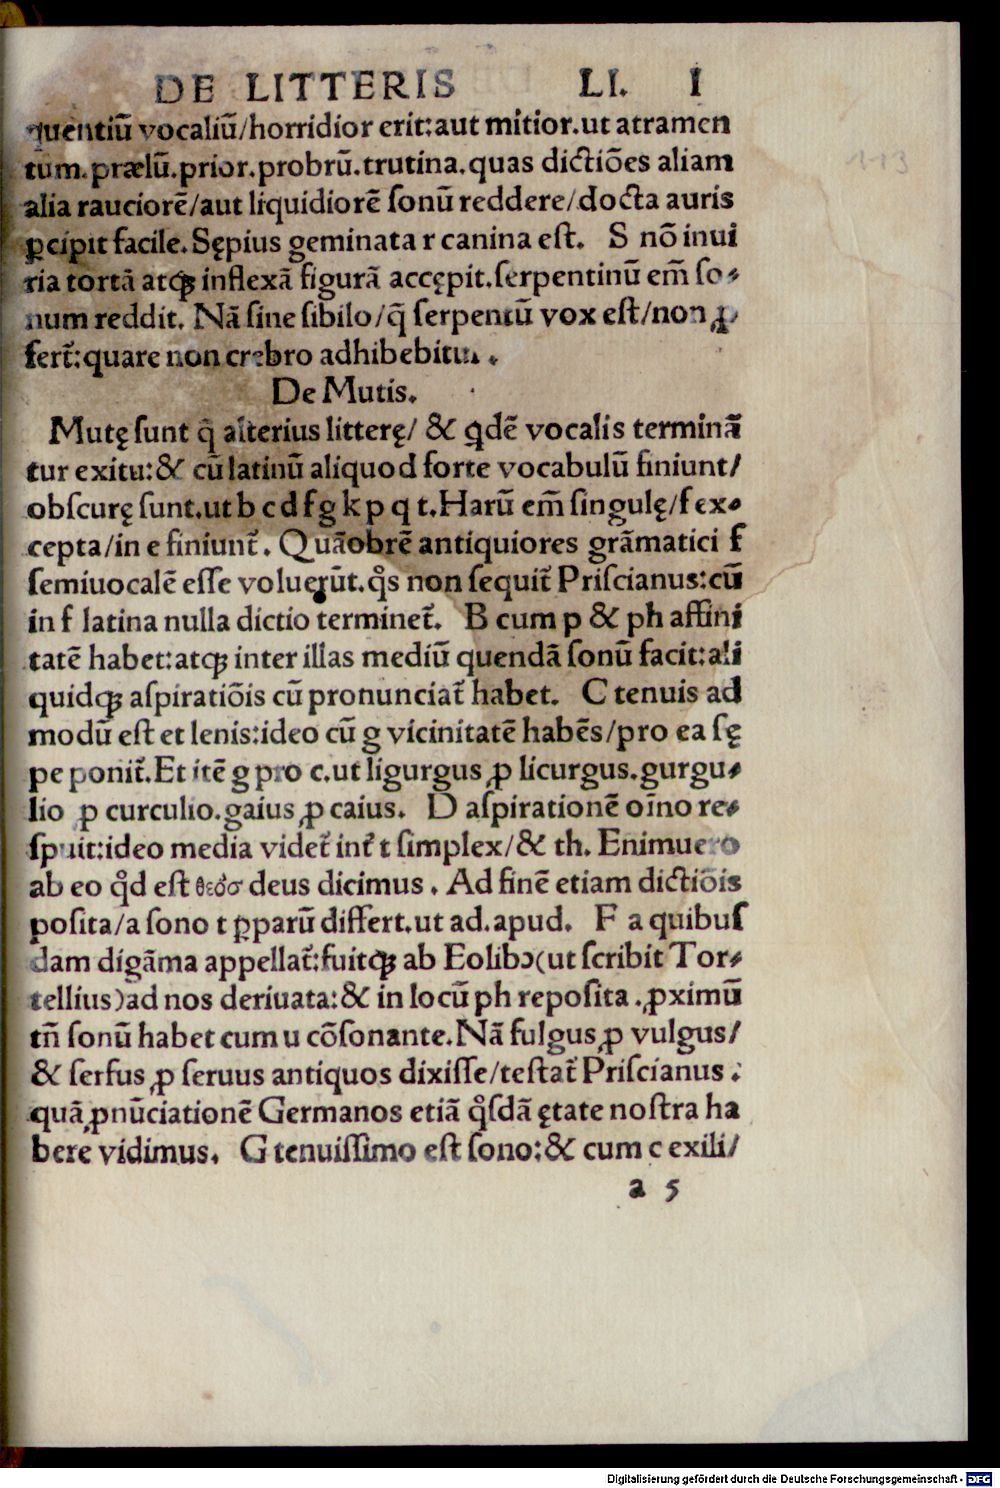 DE LITTERIS LI. I
113
quentiū vocaliū/horridior erit:aut mitior.ut atramen
tum.prælū.prior.probrū.trutina.quas dictiões aliam
alia rauciorē/aut liquidiorē ſonū reddere/docta auris
ꝑcipit facile.Sępius geminata r canina eſt. S nō inui
ria tortā atqꝫ inflexā figurā accępit.ſerpentinū em̄ ſo⸗
num reddit. Nā ſine ſibilo/q̄ ſerpentū vox eſt/non ꝓ
fert᷑:quare non crebro adhibebitur.
De Mutis.
Mutę ſunt q̄ alterius litterę/ & q̇dē vocalis terminā
tur exitu:& cū latinū aliquod forte vocabulū finiunt/
obſcurę ſunt.ut b c d f g k p q t.Harū em̄ ſingulę/f ex⸗
cepta/in e finiunt᷑. Quāobrē antiquiores grāmatici f
ſemiuocalē eſſe voluerūt.qͦs non ſequit᷑ Priſcianus:cū
in f latina nulla dictio terminet᷑. B cum p & ph affini
tatē habet:atqꝫ inter illas mediū quendā ſonū facit:ali
quidqꝫ aſpiratiōis cū pronunciat᷑ habet. C tenuis ad
modū eſt et lenis:ideo cū g vicinitatē habēs/pro ea ſę
pe ponit᷑.Et itē g pro c.ut ligurgus ꝓ licurgus.gurgu⸗
lio ꝓ curculio.gaius ꝓ caius. D aſpirationē oīno re⸗
ſpuit:ideo media videt᷑ int᷑ t ſimplex/& th. Enimuero
ab eo qͦd eſt θεόσ deus dicimus. Ad finē etiam dictiōis
poſita/a ſono t ꝑparū differt.ut ad.apud. F a quibuſ
dam digāma appellat᷑:fuitqꝫ ab Eolibꝰ(ut ſcribit Tor⸗
tellius)ad nos deriuata:& in locū ph repoſita.ꝓximū
tn̄ ſonū habet cum u cōſonante.Nā fulgus ꝓ vulgus/
& ſerfus ꝓ ſeruus antiquos dixiſſe/teſtat᷑ Priſcianus.
quā ꝓnūciationē Germanos etiā qͦſdā ętate noſtra ha
bere vidimus. G tenuiſſimo eſt ſono:& cum c exili/
a 5
Digitalisierung gefördert durch die Deutsche Forschungsgemeinschaft - DFG